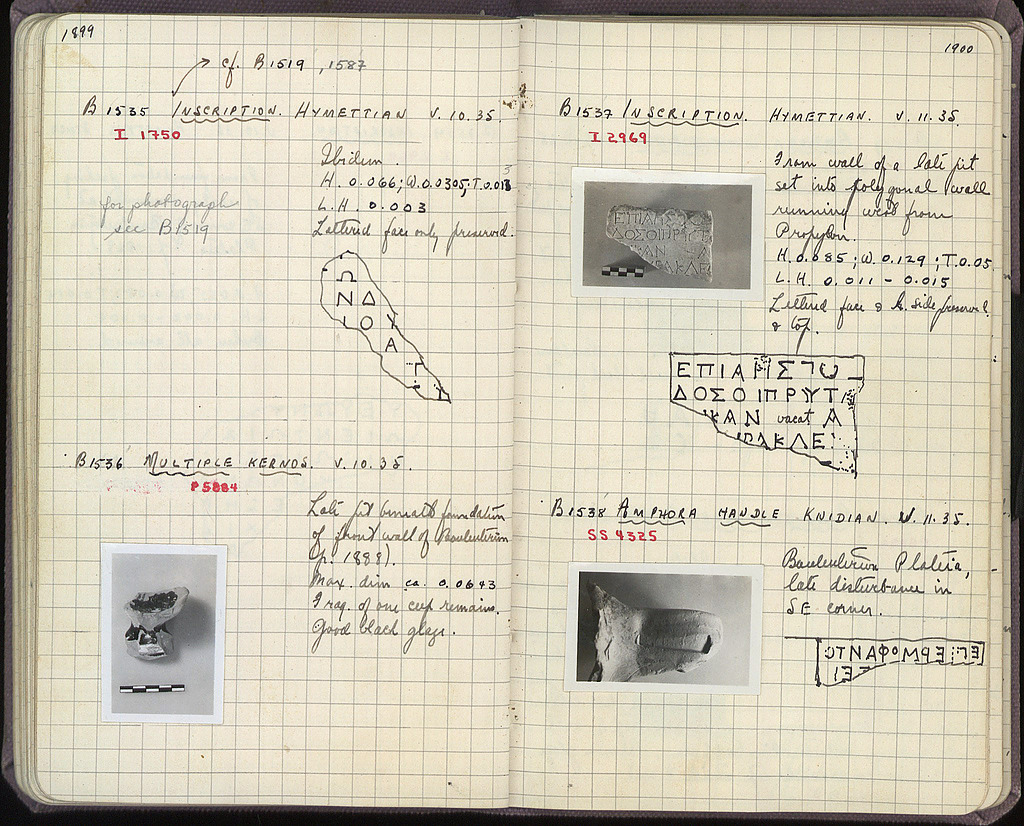 1899
cf. B1519, 1587
B1535 INSCRIPTION. HYMETTIAN V.10.35.
I 1750
Ibidem.
H. 0.066; W. 0.0305; T. 0.013
L.H. 0.003
Lettered face only preserved.
for photograph
see B1519
Ω
ΝΔ
ΙΟΥ
Α
Γ
B1536 MULTIPLE KERNOS. V.10.35.
P5884
Late pit beneath foundation
of front wall of Bouleuterion
(p. 1888).
Max. dim. ca. 0.0643
Frag. of one cup remains.
Good black glaze.
1900
B1537 INSCRIPTION. HYMETTIAN. V.11.35.
I 2969
From wall of a late pit
set into polygonal wall
running west from
Propylon.
H. 0.085; W. 0.129; T. 0.05
L.H. 0.011 - 0.015
Lettered face & L. side preserved
& top.
ΕΠΙΑΡΙΣΤΟ
ΔΟΣΟΙΠΡΥΤ
ΑΝ vacat Α
ΑΚΛΕ
B1538 AMPHORA HANDLE KNIDIAN. V.11.35.
SS 4325
Bouleuterion Plateia,
late disturbance in
SE corner.
ΟΤΝΑΦΟΜΡΕ ΙΠΕ
ΙΕ